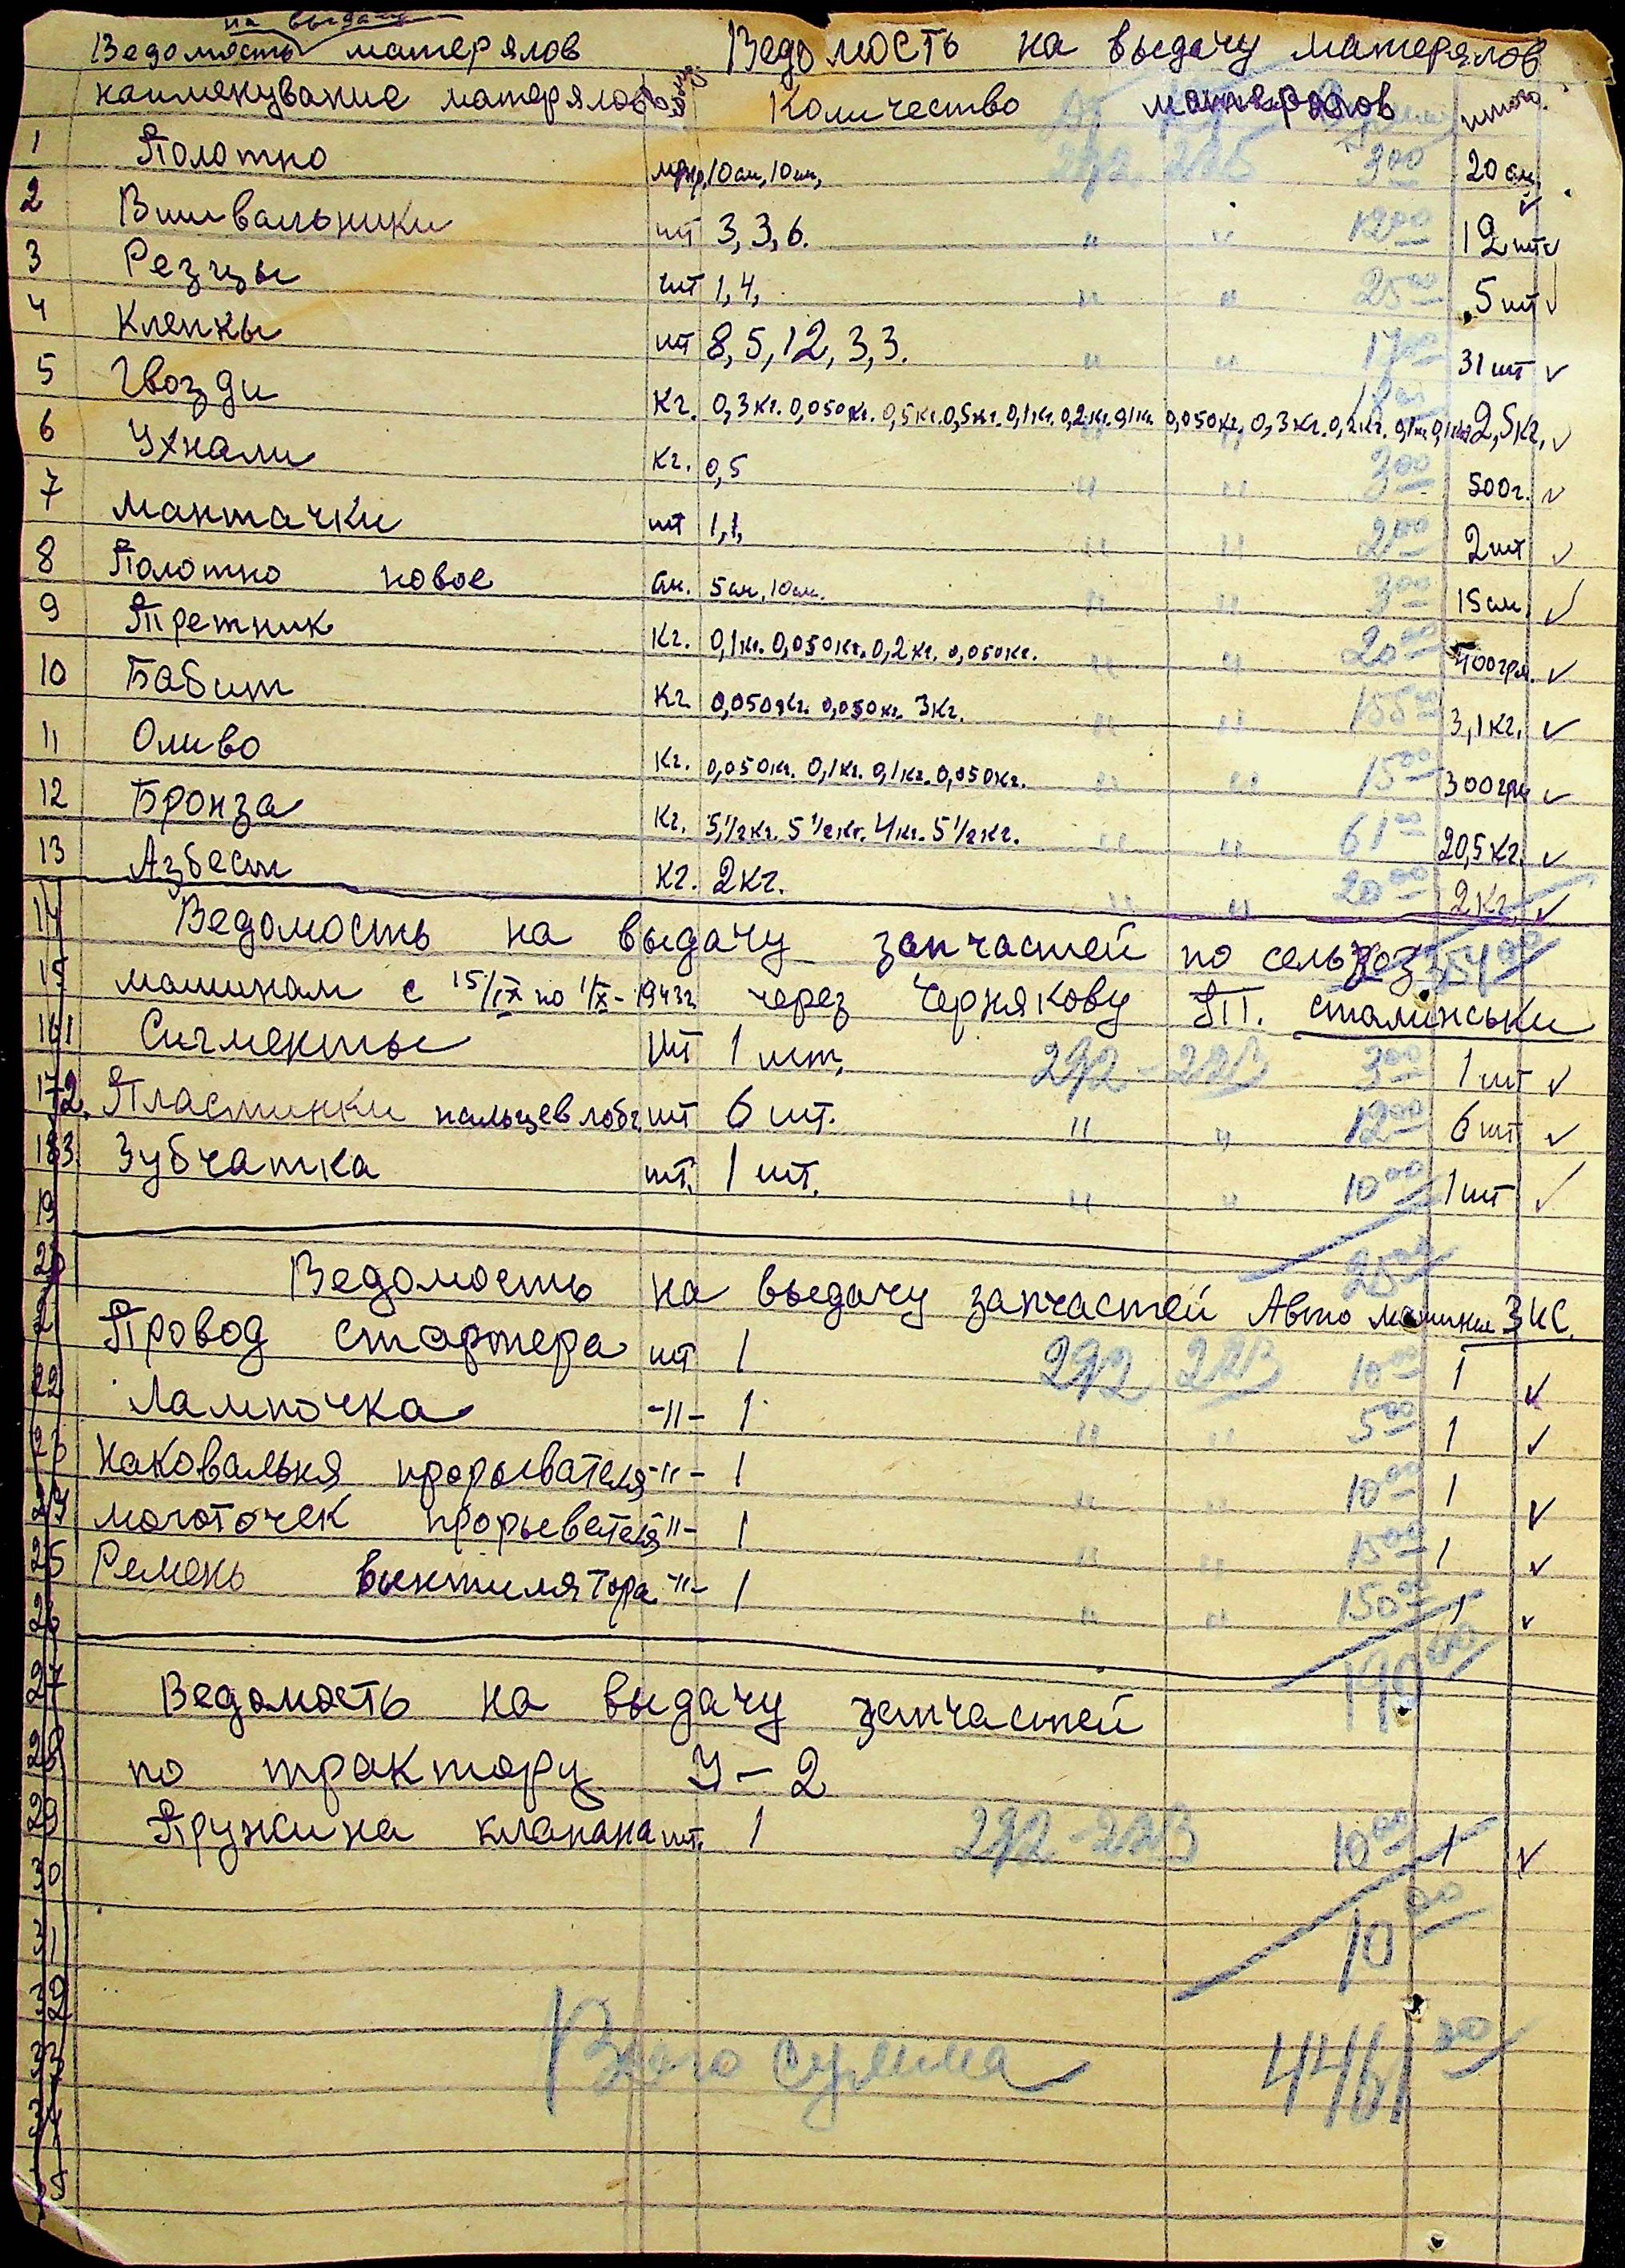 на выдачу
Ведомость матерялов Ведомость на выдачу матерялов
наименування матерялов Количество матерялов итого
1 Полотно 10 см, 10 см, 292 3 00 20 см.
2 Вшивальники шт 3, 3, 6. " " 12 00 12 шт
3 Резцы шт 1, 4, " " 25 00 5 шт
4 Клепки шт 8, 5, 12, 3, 3. " " 17 00 31 шт
5 Гвозди Кг. 0,3 кг. 0,050 кг. 0,5 кг. 0,5 кг. 0,1 кг. 0,2 кг. 0,1 кг. 0,050 кг. 0,3 кг. 0,2 кг. 0,1 кг 0,1 кг 2,5 кг.
6 Ухнали Кг. 0,5 " " 3 00 500 г.
7 Мантачки шт 1, 1, " " 2 00 2 шт
8 Полотно новое см. 5 см, 10 см. " " 3 00 15 см.
9 Третник Кг. 0,1 кг. 0,050 кг. 0,2 кг. 0,050 кг. " " 20 00 400 грм.
10 Бабит Кг 0,050 кг. 0,050 кг. 3 кг. " " 155 00 3,1 кг.
11 Оливо Кг. 0,050 кг. 0,1 кг. 0,1 кг. 0,050 кг. " " 15 00 300 грм
12 Бронза Кг. 5 1/2 кг. 5 1/2 кг. 4 кг. 5 1/2 кг. " " 61 00 20,5 кг.
13 Азбест Кг. 2 кг. " " 20 00 2 кг.
14 Ведомость на выдачу запчастей по сельхоз
15 машинам с 15/IX по 1/X - 1943 г через Чернякову П. Сталінськи
16 1 Сигменты шт 1 шт. 292 - 223 3 00 1 шт
17 2. Пластинки пальцев лобг. шт 6 шт. " " 12 00 6 шт
18 3. Зубчатка шт. 1 шт. " " 10 00 1 шт
19
20 25 00
Ведомость на выдачу запчастей Авто машины ЗИС.
21 Провод стартера шт 1 292 223 10 00 1
22 Лампочка -"- 1 " " 5 00 1
23 Наковальня прорывателя -"- 1 " " 10 00 1
24 молоточек прорывателя -"- 1 " " 15 00 1
25 Ремень вынтилятора -"- 1 " " 150 00 1
26 190 00
27 Ведомость на выдачу запчастей
28 по трактору У-2
29 Пружина клапана шт. 1 292 - 223 10 00 1
30
10 00
31
32
33 Всего сумма
34
35